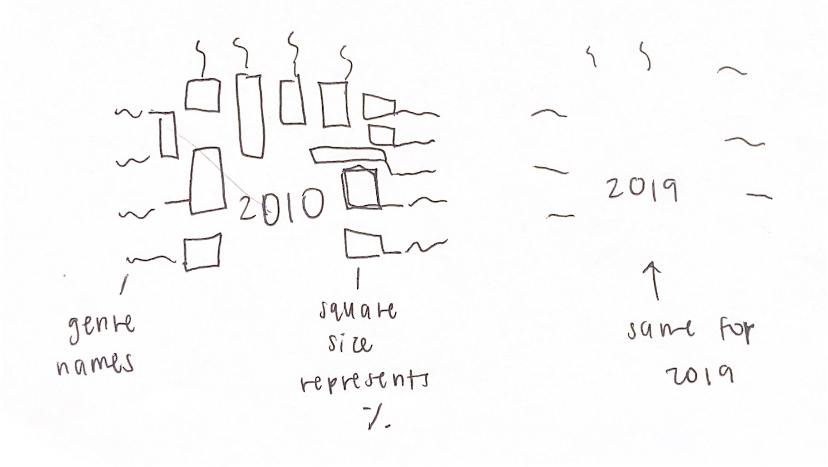 2010
2019
genre
names
square
size
represents
%.
same for
2019